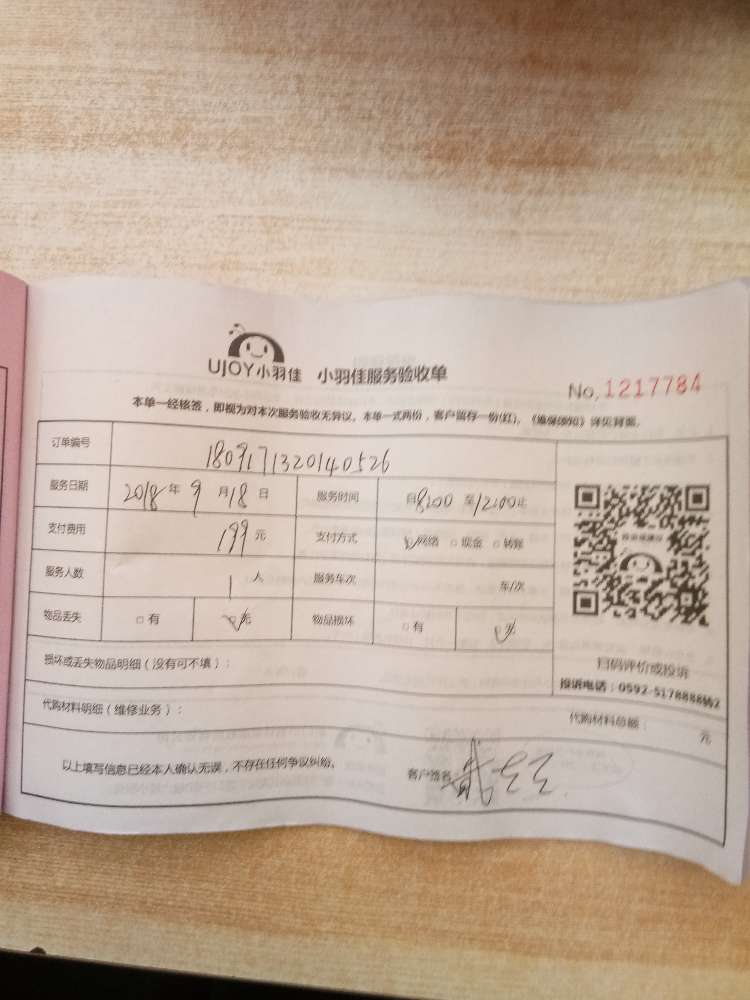 UJOY小羽佳 小羽佳服务验收单
No. 1217784
本单一经核签，即视为对本次服务验收无异议。本单一式两份，客户留存一份(红)。《维保须知》详见背面。
订单编号 1809171320140526
服务日期 2018年9月18日 服务时间 自8:00至12:00止
支付费用 199元 支付方式 ☑网络 □现金 □转账
服务人数 1人 服务车次 车/次
物品丢失 □有 ☑无 物品损坏 □有 ☑无
扫码评价或投诉
投诉电话：0592-5178888转2
损坏或丢失物品明细（没有可不填）：
代购材料明细（维修业务）： 代购材料总额： 元
以上填写信息已经本人确认无误，不存在任何争议纠纷。 客户签名